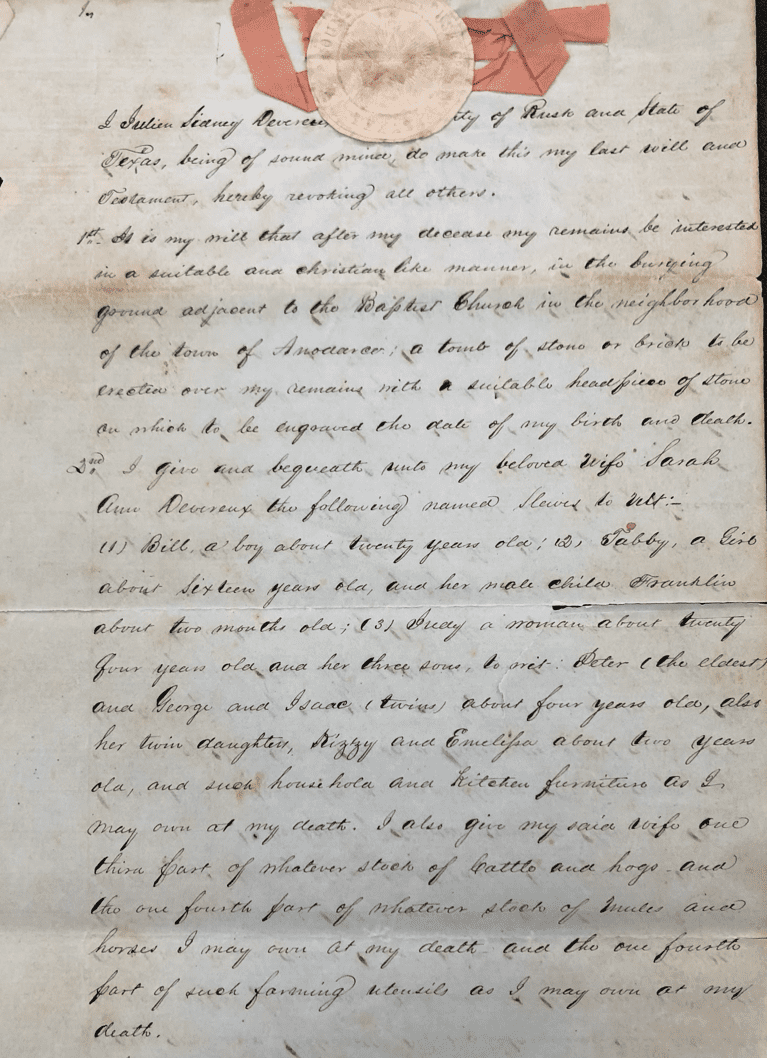 I Julien Sidney Devereu ty of Rusk and State of
Texas, being of sound mind, do make this my last will and
Testament, hereby revoking all others.
1st. It is my will that after my decease my remains be interested
in a suitable and christian like manner, in the burying
ground adjacent to the Baptist Church in the neighborhood
of the town of Anodarco; a tomb of stone or brick to be
erected over my remains with a suitable headpiece of stone
on which to be engraved the date of my birth and death.
2nd. I give and bequeath unto my beloved Wife Sarah
Ann Devereux the following named Slaves to Wit:-
(1) Bill, a boy about twenty years old; (2) Tabby, a Girl
about Sixteen years old, and her male child Franklin
about two months old; (3) Judy a woman about twenty
four years old and her three sons, to wit: Peter (the eldest)
and George and Isaac (twins) about four years old, also
her twin daughters, Kizzy and Emelissa about two years
old, and such household and Kitchen furniture as I
may own at my death. I also give my said wife one
third part of whatever stock of Cattle and hogs and
the one fourth part of whatever stock of mules and
horses I may own at my death and the one fourth
part of such farming utensils as I may own at my
death.